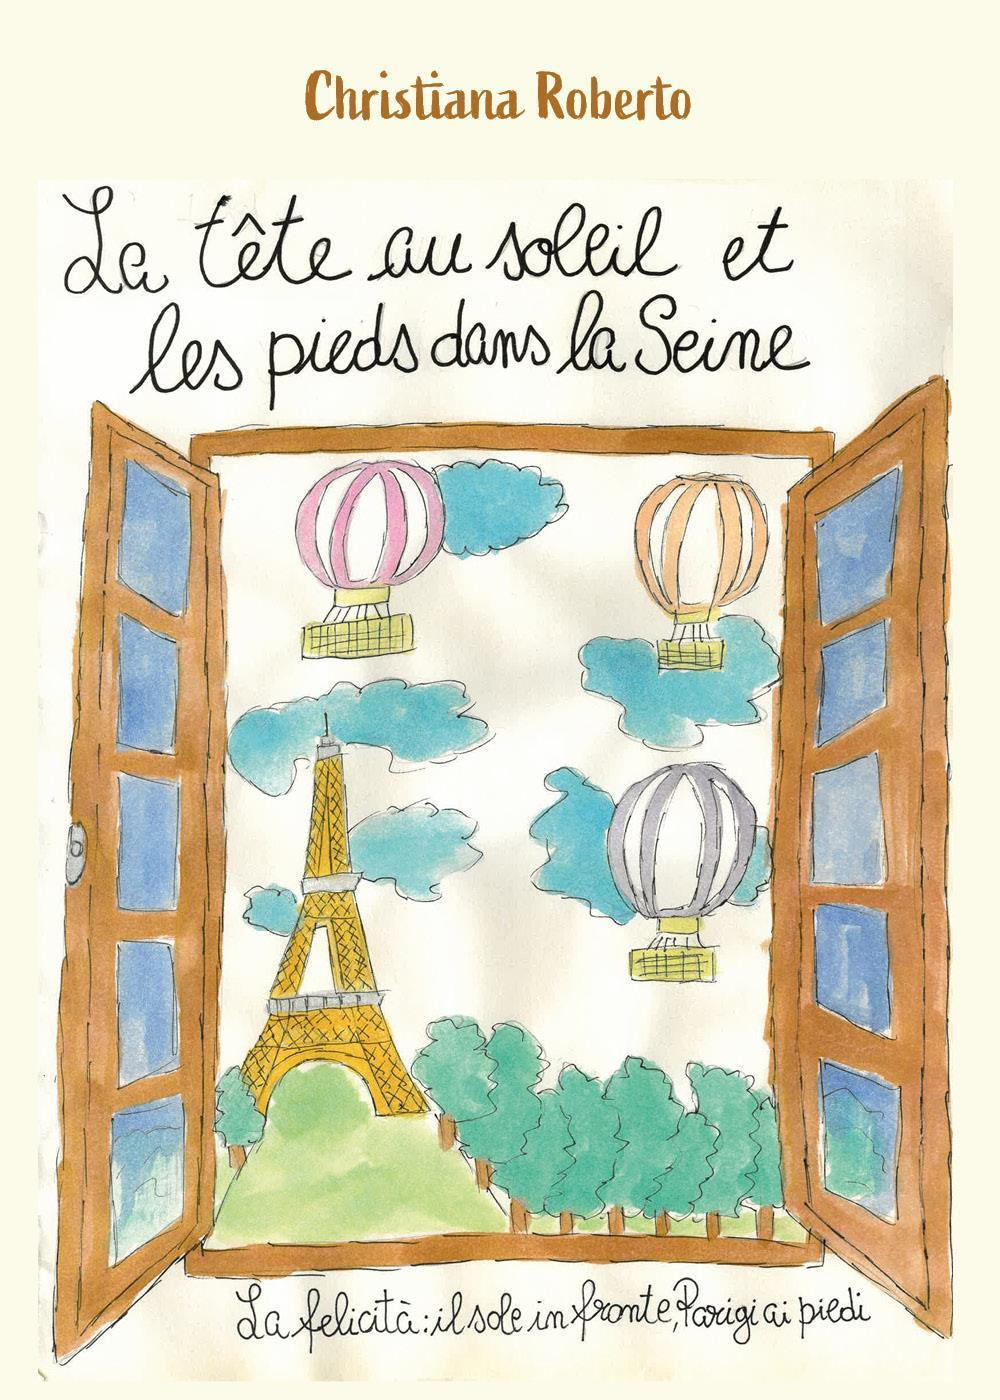 Christiana Roberto
La tête au soleil et
les pieds dans la Seine
La felicità: il sole in fronte, Parigi ai piedi